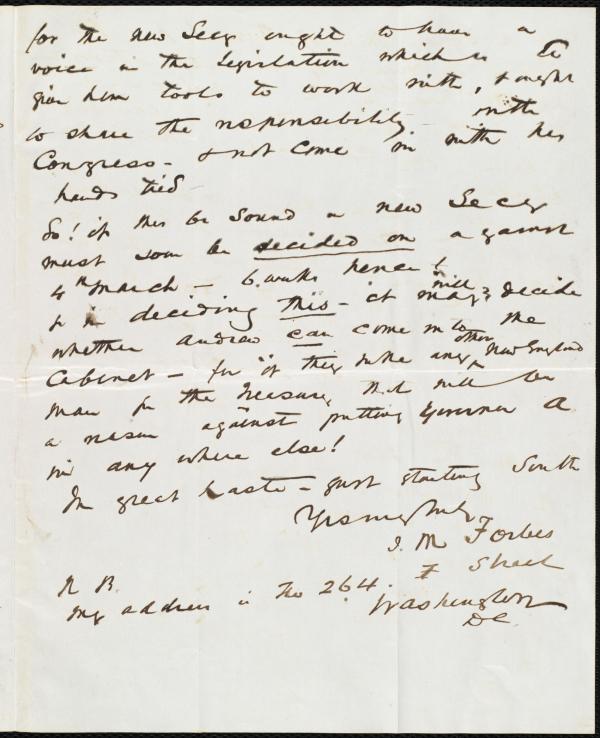 for the new Secy ought to have a
voice in the Legislation which is to
give him tools to work with, & ought
to share the responsibility with
Congress - & not come in with his
hands tied
So! if this be sound a new Secy
must soon be decided on against
4th March - 6 weeks hence!
& in deciding this - it may will decide
whether Andrew can come into the
Cabinet - for if they take any other New England
man for the Treasury that will be
a reason against putting Governor A
in any where else!
In great haste - just starting South
Yrs truly
J. M Forbes
F Street
N B.
My address is No 264.
Washington
DC.